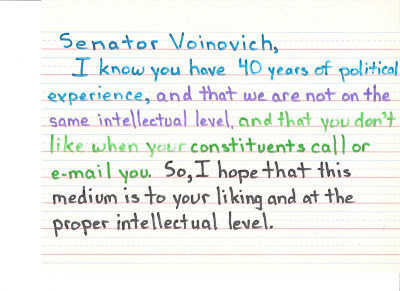 Senator Voinovich,
I know you have 40 years of political
experience, and that we are not on the
same intellectual level, and that you don't
like when your constituents call or
e-mail you. So, I hope that this
medium is to your liking and at the
proper intellectual level.